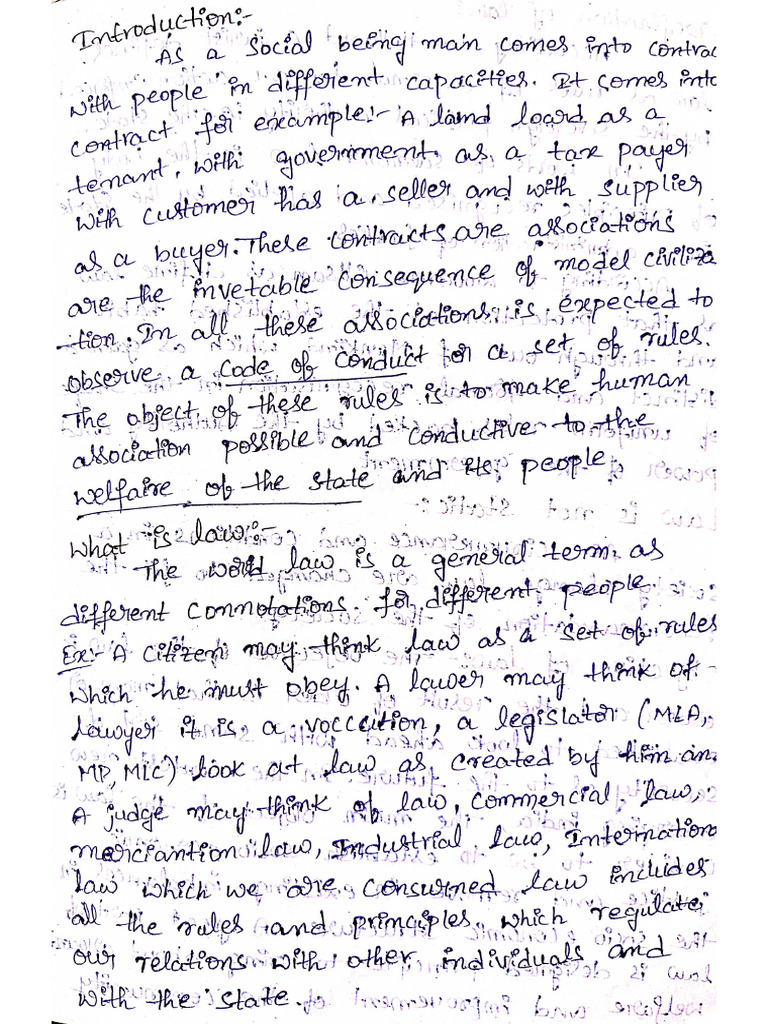 Introduction:-
As a social being man comes into contrac
with people in different capacities. It comes into
contract for example:- A land loard as a
tenant, with government as a tax payer
with customer has a seller and with supplier
as a buyer. These contracts are associations
are the invetable consequence of model civiliza
-tion. In all these associations is expected to
observe a code of conduct or a set of rules.
The object of these rules is to make human
association possible and conductive to the
welfaire of the state and its people
What is law:-
The word law is a general term as
different connotations for different people.
Ex:- A citizen may think law as a set of rules
which he must obey. A lawer may think of
lawyer it is a voccution, a legislator (MLA,
MP, MLC) look at law as created by him an
A judge may think of law, commercial law,
merciantion law, Industrial law, Internationa
law which we are consurned law includes
all the rules and principles which regulate
our relations with other individuals and
with the state.